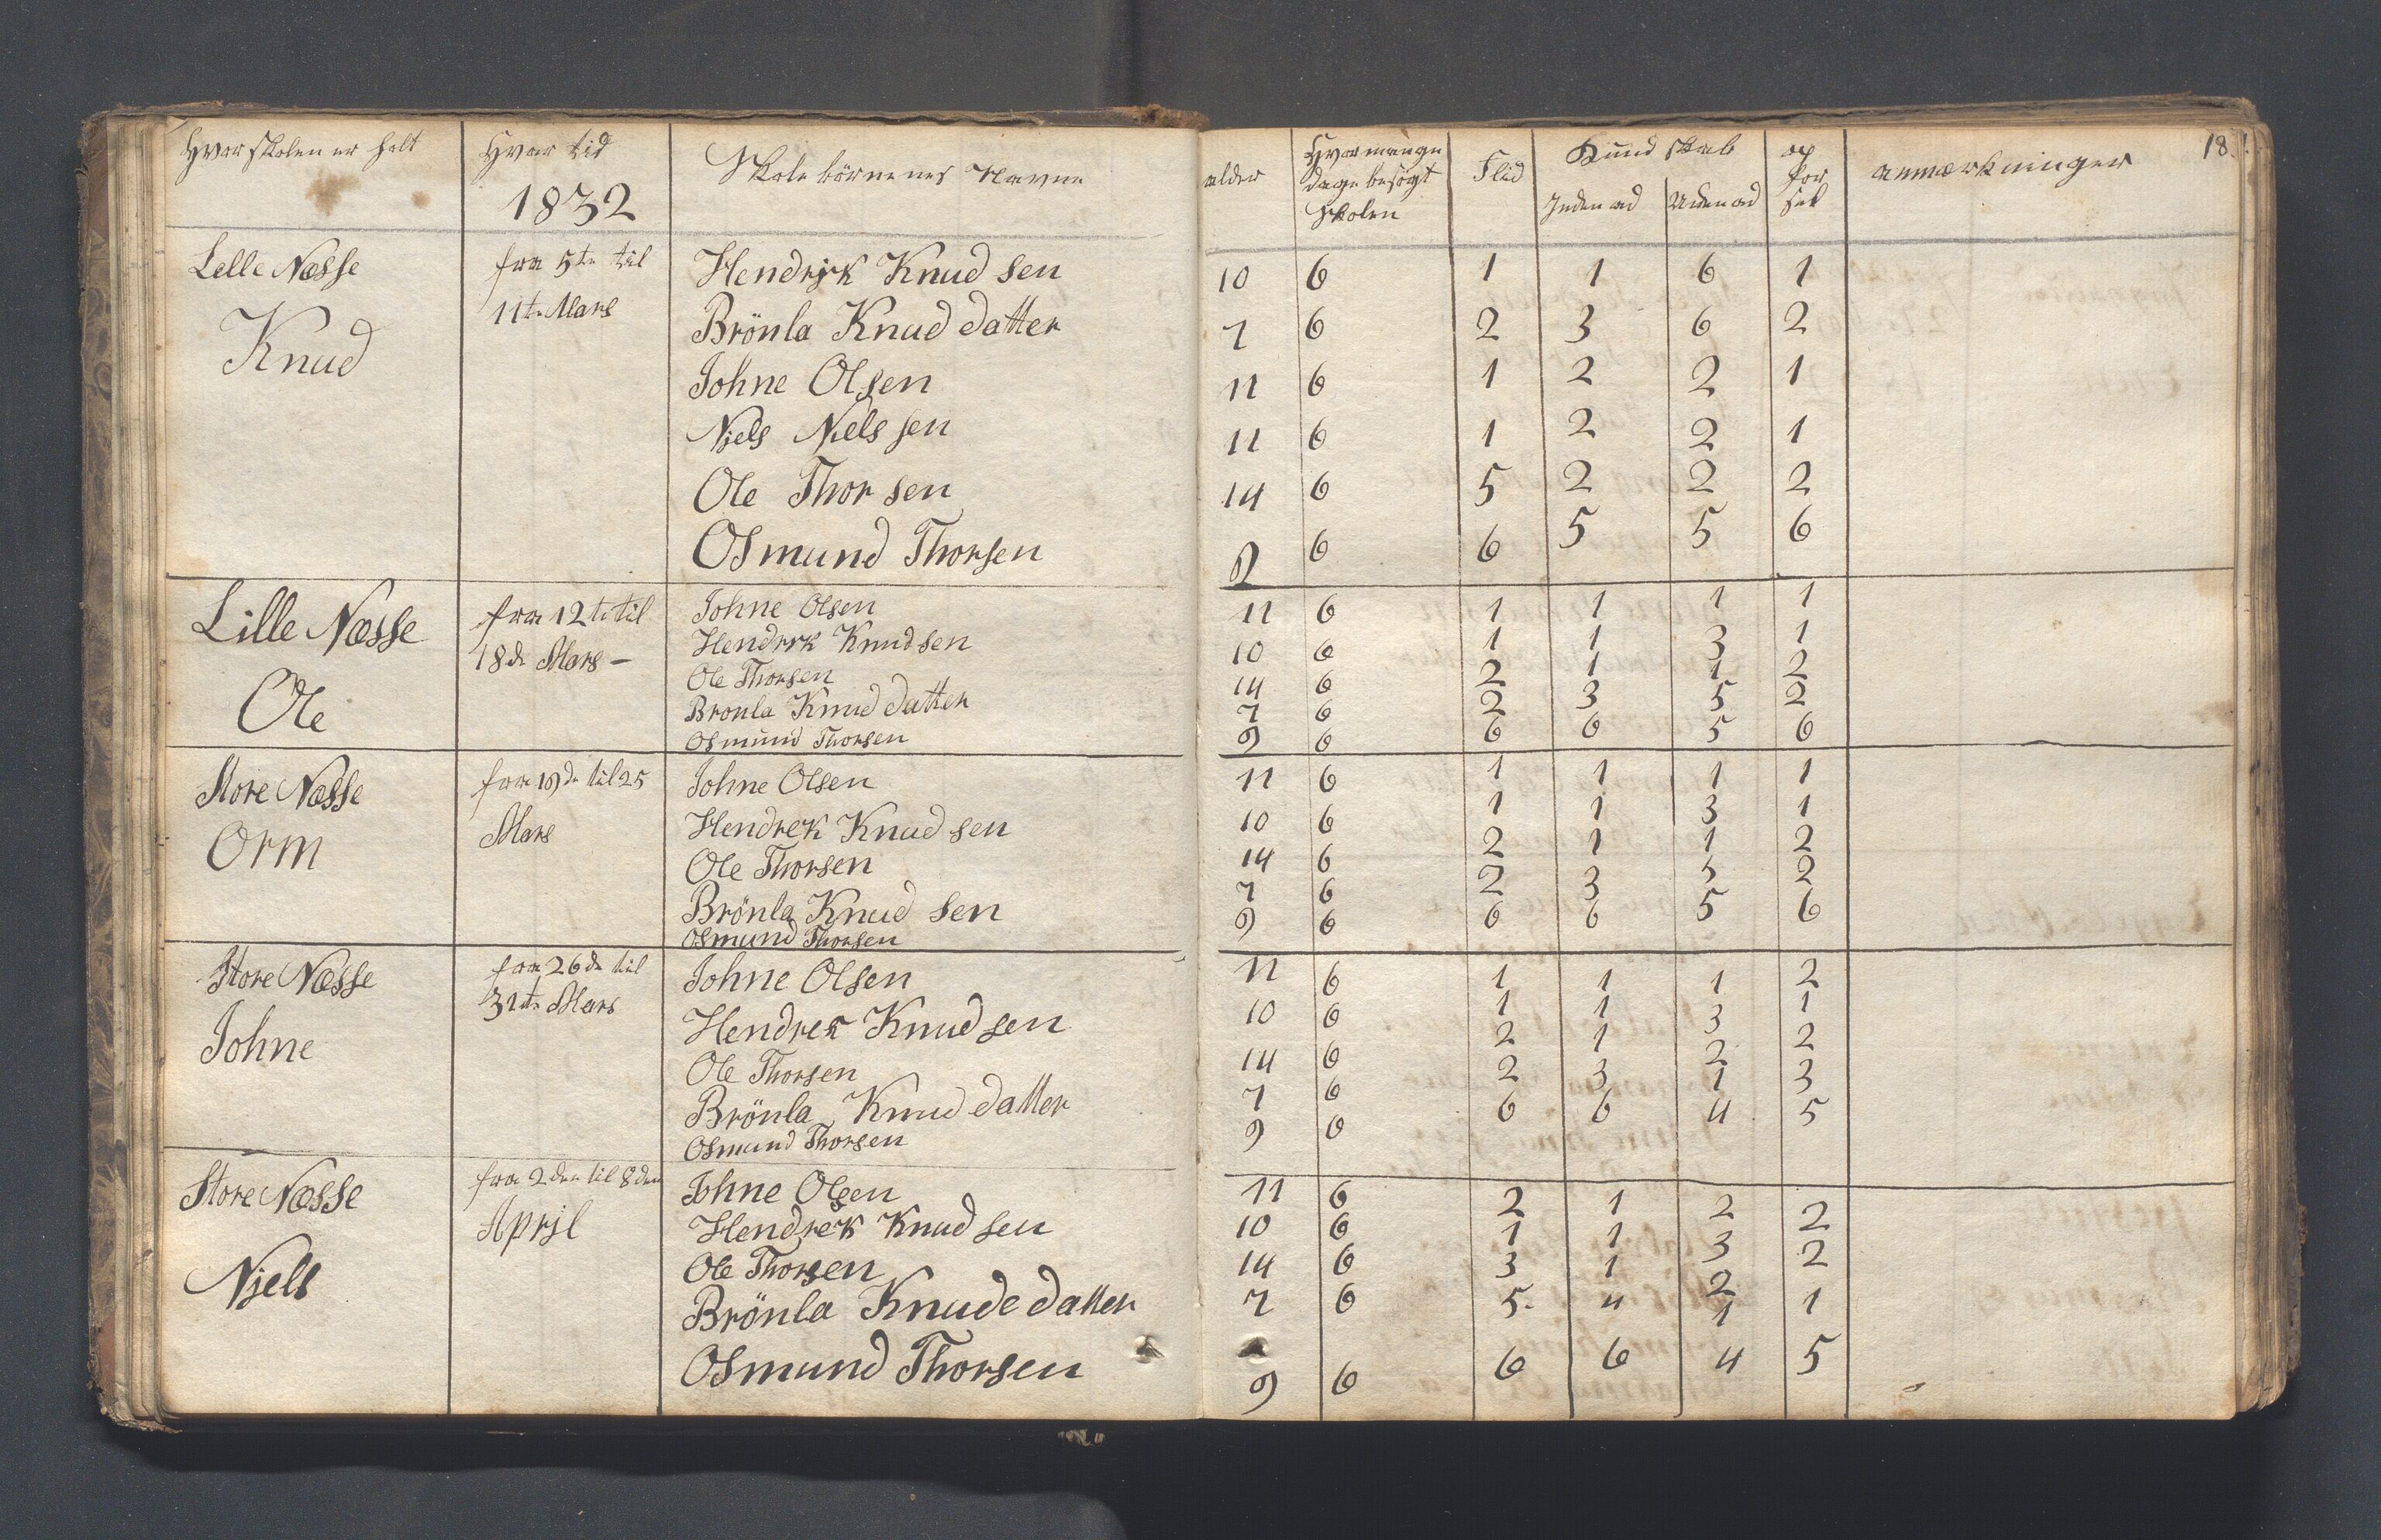 Hvor skolen er holt | Hvor tid 1832 | Skole börnenes Navne | alder | Hvor mange dage besögt Skolen | Flid | Kund skab Inden ad | Uden ad | op for sel | anmærkninger | 18.
Lelle Nœsse | fra 5te til | Hendrjk Knud sen | 10 | 6 | 1 | 1 | 6 | 1
Knud | 11te Mars | Brönla Knud datter | 7 | 6 | 2 | 3 | 6 | 2
Johne Olsen | 11 | 6 | 1 | 2 | 2 | 1
Njels Nielssen | 11 | 6 | 1 | 2 | 2 | 1
Ole Thor sen | 14 | 6 | 5 | 2 | 2 | 2
Osmund Thorsen | 9 | 6 | 6 | 5 | 5 | 6
Lille Nœsse | fra 12te til | Johne Olsen | 11 | 6 | 1 | 1 | 1 | 1
18de Mars – | Hendrrk Knudsen | 10 | 6 | 1 | 1 | 3 | 1
Ole | Ole Thorsen | 14 | 6 | 2 | 1 | 1 | 2
Bronla Knud datter | 7 | 6 | 2 | 3 | 5 | 2
Osmund Thorsen | 9 | 6 | 6 | 6 | 5 | 6
Store Nœsse | fra 19de til 25 | Johne Olsen | 11 | 6 | 1 | 1 | 1 | 1
Orm | Mars | Hendrek Knud sen | 10 | 6 | 1 | 1 | 3 | 1
Ole Thorsen | 14 | 6 | 2 | 1 | 1 | 2
Brönla Knud sen | 7 | 6 | 2 | 3 | 5 | 2
Osmund Thorsen | 9 | 6 | 6 | 6 | 5 | 6
Store Nœsse | fra 26de til | Johne Olsen | 11 | 6 | 1 | 1 | 1 | 2
Johne | 31te Mars | Hendrek Knud sen | 10 | 6 | 1 | 1 | 3 | 1
Ole Thorsen | 14 | 6 | 2 | 1 | 2 | 2
Brönla Knud datter | 7 | 6 | 2 | 3 | 1 | 3
Osmund Thorsen | 9 | 6 | 6 | 6 | 4 | 5
Store Nœsse | fra 2den til 8den | Johne Olsen | 11 | 6 | 2 | 1 | 2 | 2
Njels | Aprjl | Hendrek Knud sen | 10 | 6 | 1 | 1 | 3 | 2
Ole Thorsen | 14 | 6 | 3 | 1 | 2
Brönla Knude datter | 7 | 6 | 5. | 4 | 1 | 1
Osmund Thorsen | 9 | 6 | 6 | 6 | 4 | 5